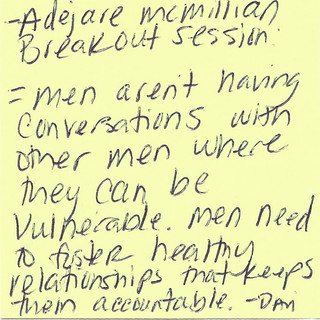 -Adejare mcmillian
Breakout session:
= men aren't having
conversations with
other men where
they can be
vulnerable. men need
to foster healthy
relationships that keeps
them accountable. -Dan